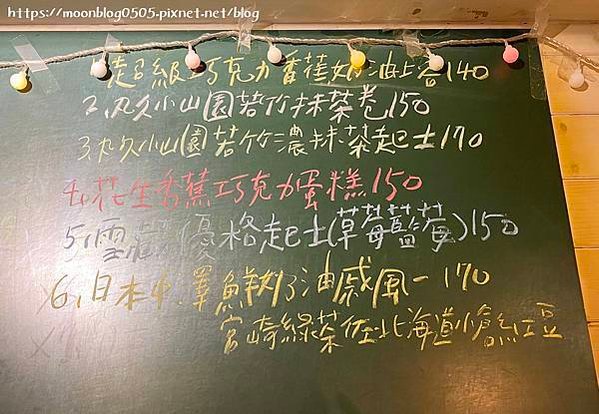 https://moonblog0505.pixnet.net/blog
超級巧克力香蕉奶油上谷140
2.丸久小山園若竹抹茶卷150
3.丸久小山園若竹濃抹茶起士170
4.花生香蕉巧克力蛋糕150
5.雪 優格起士(草莓藍莓)150
6.日本中澤鮮奶油戚風-170
宮崎綠茶佐北海道小倉紅豆